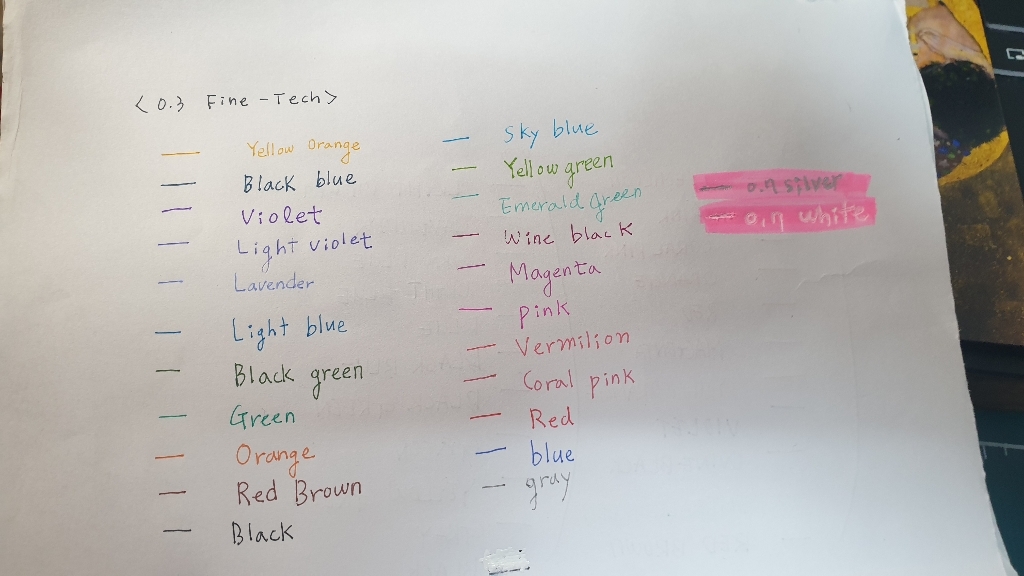 <0.3 Fine-Tech>
Yellow Orange
Black blue
Violet
Light violet
Lavender
Light blue
Black green
Green
Orange
Red Brown
Black
Sky blue
Yellow green
Emerald green
Wine black
Magenta
pink
Vermilion
Coral pink
Red
blue
gray
0.7 silver
0.7 white